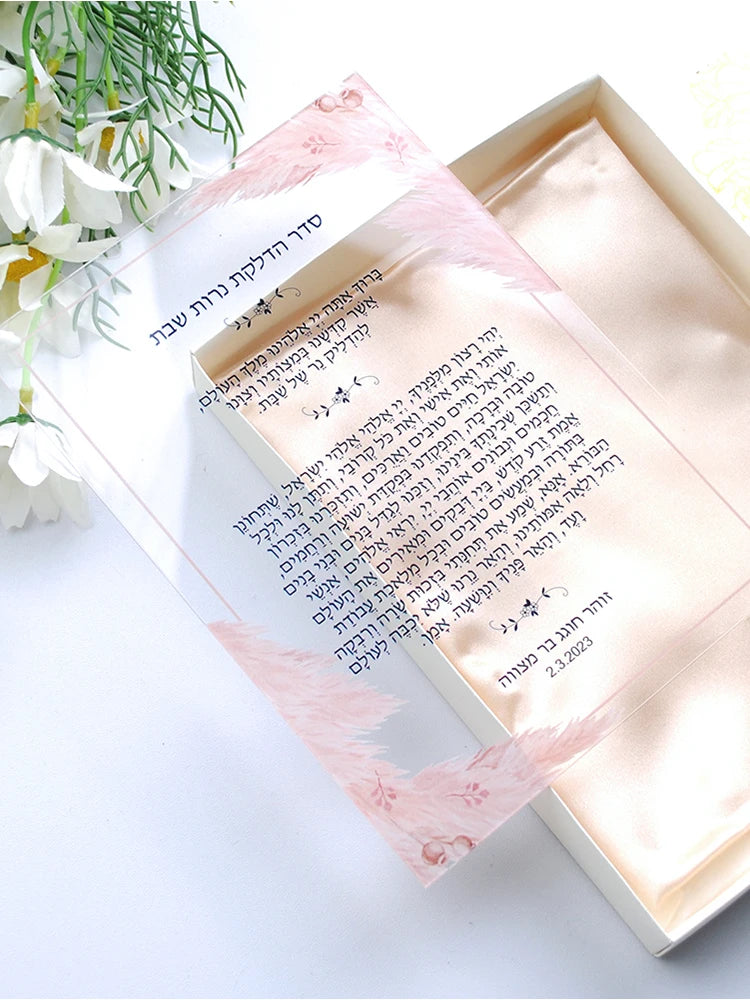 סדר הדלקת נרות שבת
בָּרוּךְ אַתָּה יְיָ אֱלֹהֵינוּ מֶלֶךְ הָעוֹלָם,
אֲשֶׁר קִדְּשָׁנוּ בְּמִצְוֹתָיו וְצִוָּנוּ
לְהַדְלִיק נֵר שֶׁל שַׁבָּת.
יְהִי רָצוֹן מִלְּפָנֶיךָ, יְיָ אֱלֹהַי אֱלֹהֵי יִשְׂרָאֵל, שֶׁתְּחוֹנֵן
אוֹתִי וְאֶת אִישִׁי וְאֶת כָּל קְרוֹבַי, וְתִתֵּן לָנוּ וּלְכָל
יִשְׂרָאֵל חַיִּים טוֹבִים וַאֲרֻכִּים, וְתִזְכְּרֵנוּ בְּזִכְרוֹן
טוֹבָה וּבְרָכָה, וְתִפְקְדֵנוּ בִּפְקֻדַּת יְשׁוּעָה וְרַחֲמִים,
וְתַשְׁכֵּן שְׁכִינָתְךָ בֵּינֵינוּ, וְזַכֵּנוּ לְגַדֵּל בָּנִים וּבְנֵי בָנִים
חֲכָמִים וּנְבוֹנִים אוֹהֲבֵי יְיָ, יִרְאֵי אֱלֹהִים, אַנְשֵׁי
אֱמֶת זֶרַע קֹדֶשׁ, בַּיְיָ דְּבֵקִים וּמְאִירִים אֶת הָעוֹלָם
בַּתּוֹרָה וּבְמַעֲשִׂים טוֹבִים וּבְכָל מְלֶאכֶת עֲבוֹדַת
הַבּוֹרֵא. אָנָּא, שְׁמַע אֶת תְּחִנָּתִי בִּזְכוּת שָׂרָה וְרִבְקָה
רָחֵל וְלֵאָה אִמּוֹתֵינוּ, וְהָאֵר נֵרֵנוּ שֶׁלֹּא יִכְבֶּה לְעוֹלָם
וָעֶד, וְהָאֵר פָּנֶיךָ וְנִוָּשֵׁעָה. אָמֵן.
זוהר חוגג בר מצווה
2.3.2023